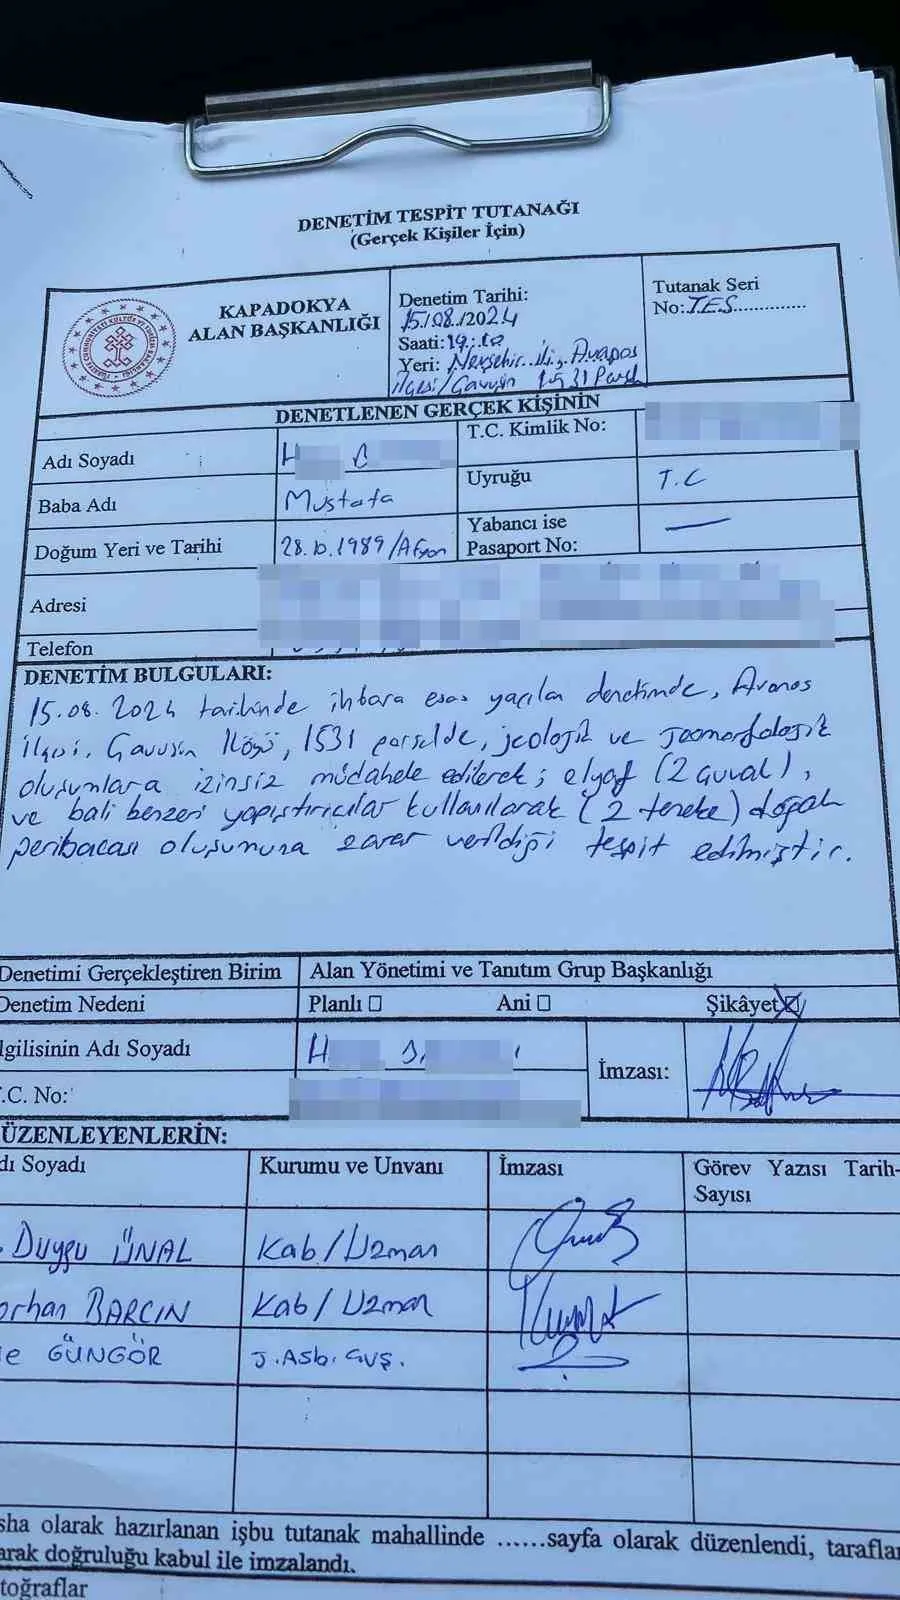 DENETİM TESPİT TUTANAĞI
(Gerçek Kişiler İçin)
KAPADOKYA
ALAN BAŞKANLIĞI
Denetim Tarihi:
15/08/2024
Saati:19:10
Yeri: Nevşehir ili, Avanos
ilçesi/Çavuşin 1531 Parsel
Tutanak Seri
No:TES..............
DENETLENEN GERÇEK KİŞİNİN
Adı Soyadı
T.C. Kimlik No:
Baba Adı Mustafa
Uyruğu T.C
Doğum Yeri ve Tarihi 28.10.1989/Afyon
Yabancı ise
Pasaport No: —
Adresi
Telefon
DENETİM BULGULARI:
15.08.2024 tarihinde ihbara esas yapılan denetimde, Avanos
ilçesi, Çavuşin Köyü, 1531 parselde, jeolojik ve jeomorfolojik
oluşumlara izinsiz müdahele edilerek; elyaf (2 çuval),
ve bali benzeri yapıştırıcılar kullanılarak (2 teneke) doğal
peribacası oluşumuna zarar verildiği tespit edilmiştir.
Denetimi Gerçekleştiren Birim Alan Yönetimi ve Tanıtım Grup Başkanlığı
Denetim Nedeni Planlı ☐ Ani ☐ Şikâyet ☒
lgilisinin Adı Soyadı
İmzası:
.C. No:
ÜZENLEYENLERİN:
dı Soyadı Kurumu ve Unvanı İmzası Görev Yazısı Tarih-
Sayısı
Duygu ÜNAL Kab/Uzman
orhan BARÇIN Kab/Uzman
e GÜNGÖR J.Asb.Çvş.
sha olarak hazırlanan işbu tutanak mahallinde ......sayfa olarak düzenlendi, taraflar
arak doğruluğu kabul ile imzalandı.
toğraflar